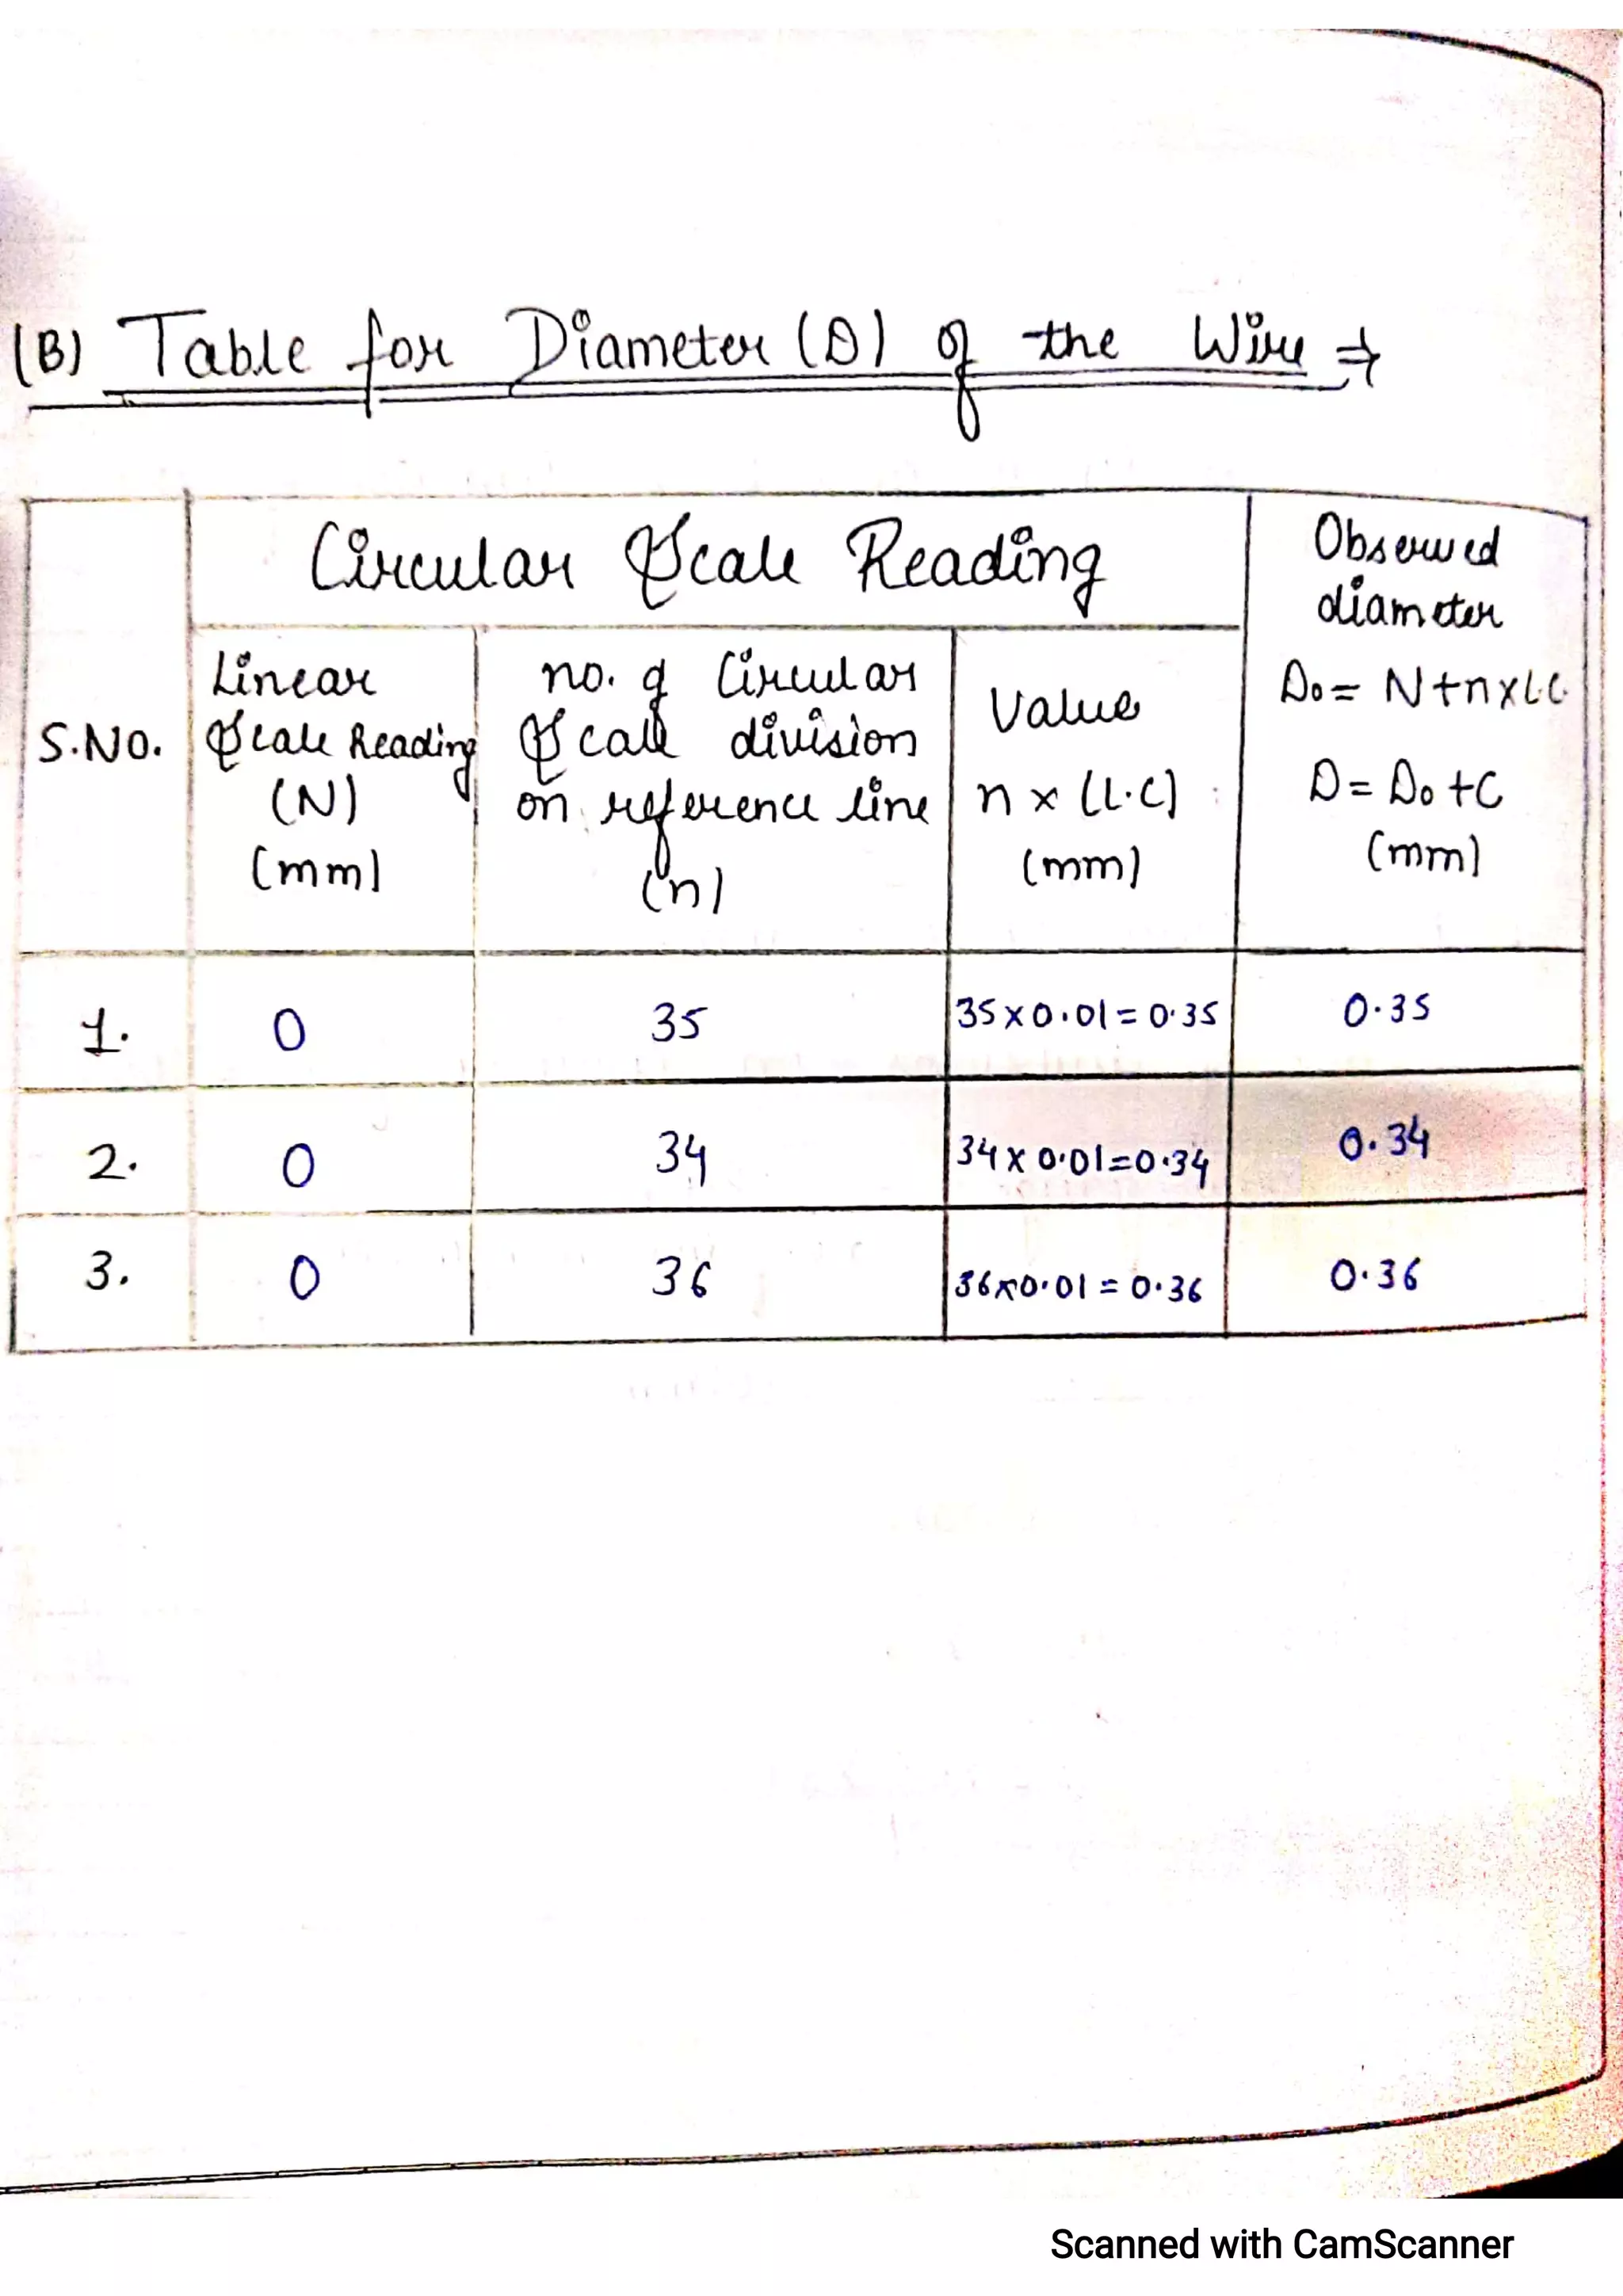 (B) Table for Diameter (D) of the Wire ⇒
S.No.
Circular Scale Reading
Linear
Scale Reading
(N)
(mm)
no. of Circular
Scale division
on reference line
(n)
Value
n x (L.C)
(mm)
Observed
diameter
D₀ = N+n×L.C.
D = D₀ + C
(mm)
1. 0 35 35×0.01=0.35 0.35
2. 0 34 34×0.01=0.34 0.34
3. 0 36 36×0.01=0.36 0.36
Scanned with CamScanner